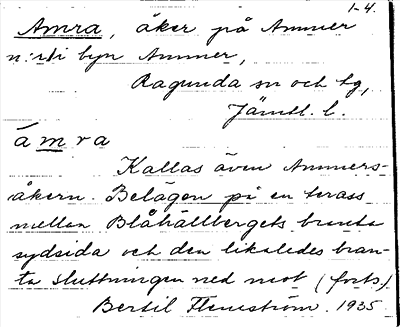 1-4.
Amra, åker på Ammer
n:r 1 i byn Ammer,
Ragunda sn och tg,
Jämtl. l.
á m r a
Kallas även Ammers-
åkern. Belägen på en terass
mellan Blåhällbergets branta
sydsida och den likaledes bran-
ta sluttningen ned mot (forts.)
Bertil Flemström. 1935